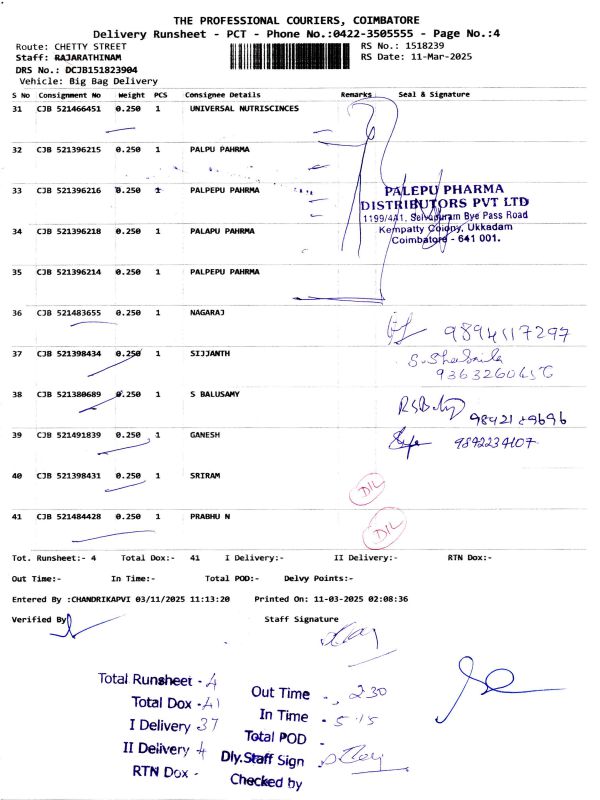 THE PROFESSIONAL COURIERS, COIMBATORE
Delivery Runsheet - PCT - Phone No.:0422-3505555 - Page No.:4
Route: CHETTY STREET RS No.: 1518239
Staff: RAJARATHINAM RS Date: 11-Mar-2025
DRS No.: DCJB151823904
Vehicle: Big Bag Delivery
S No Consignment No Weight PCS Consignee Details Remarks Seal & Signature
31 CJB 521466451 0.250 1 UNIVERSAL NUTRISCINCES
32 CJB 521396215 0.250 1 PALPU PAHRMA
33 CJB 521396216 0.250 1 PALPEPU PAHRMA
PALEPU PHARMA
DISTRIBUTORS PVT LTD
1199/4A1, Selvapuram Bye Pass Road
34 CJB 521396218 0.250 1 PALAPU PAHRMA
Kempatty Colony, Ukkadam
Coimbatore - 641 001.
35 CJB 521396214 0.250 1 PALPEPU PAHRMA
36 CJB 521483655 0.250 1 NAGARAJ
9894517297
37 CJB 521398434 0.250 1 SIJJANTH
38 CJB 521380689 0.250 1 S BALUSAMY
39 CJB 521491839 0.250 1 GANESH
9892234107
40 CJB 521398431 0.250 1 SRIRAM
D/L
41 CJB 521484428 0.250 1 PRABHU N
D/L
Tot. Runsheet:- 4 Total Dox:- 41 I Delivery:- II Delivery:- RTN Dox:-
Out Time:- In Time:- Total POD:- Delvy Points:-
Entered By :CHANDRIKAPVI 03/11/2025 11:13:20 Printed On: 11-03-2025 02:08:36
Verified By Staff Signature
Total Runsheet - 4
Total Dox - 41
I Delivery 37
II Delivery 4
RTN Dox -
Out Time - 230
In Time - 5.15
Total POD -
Dly.Staff Sign
Checked by